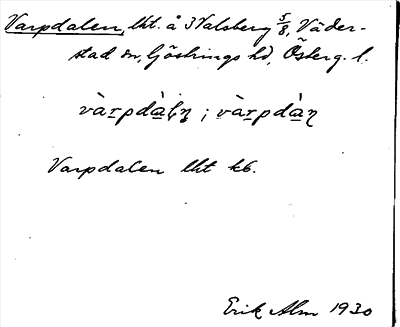 Varpdalen, lht. å 3 Valsberg 5/8, Väder-
stad sn, Göstrings hd, Österg. l.
vàrpdàln̥ ; vàrpdàn
Varpdalen lht kb.
Erik Alm 1930